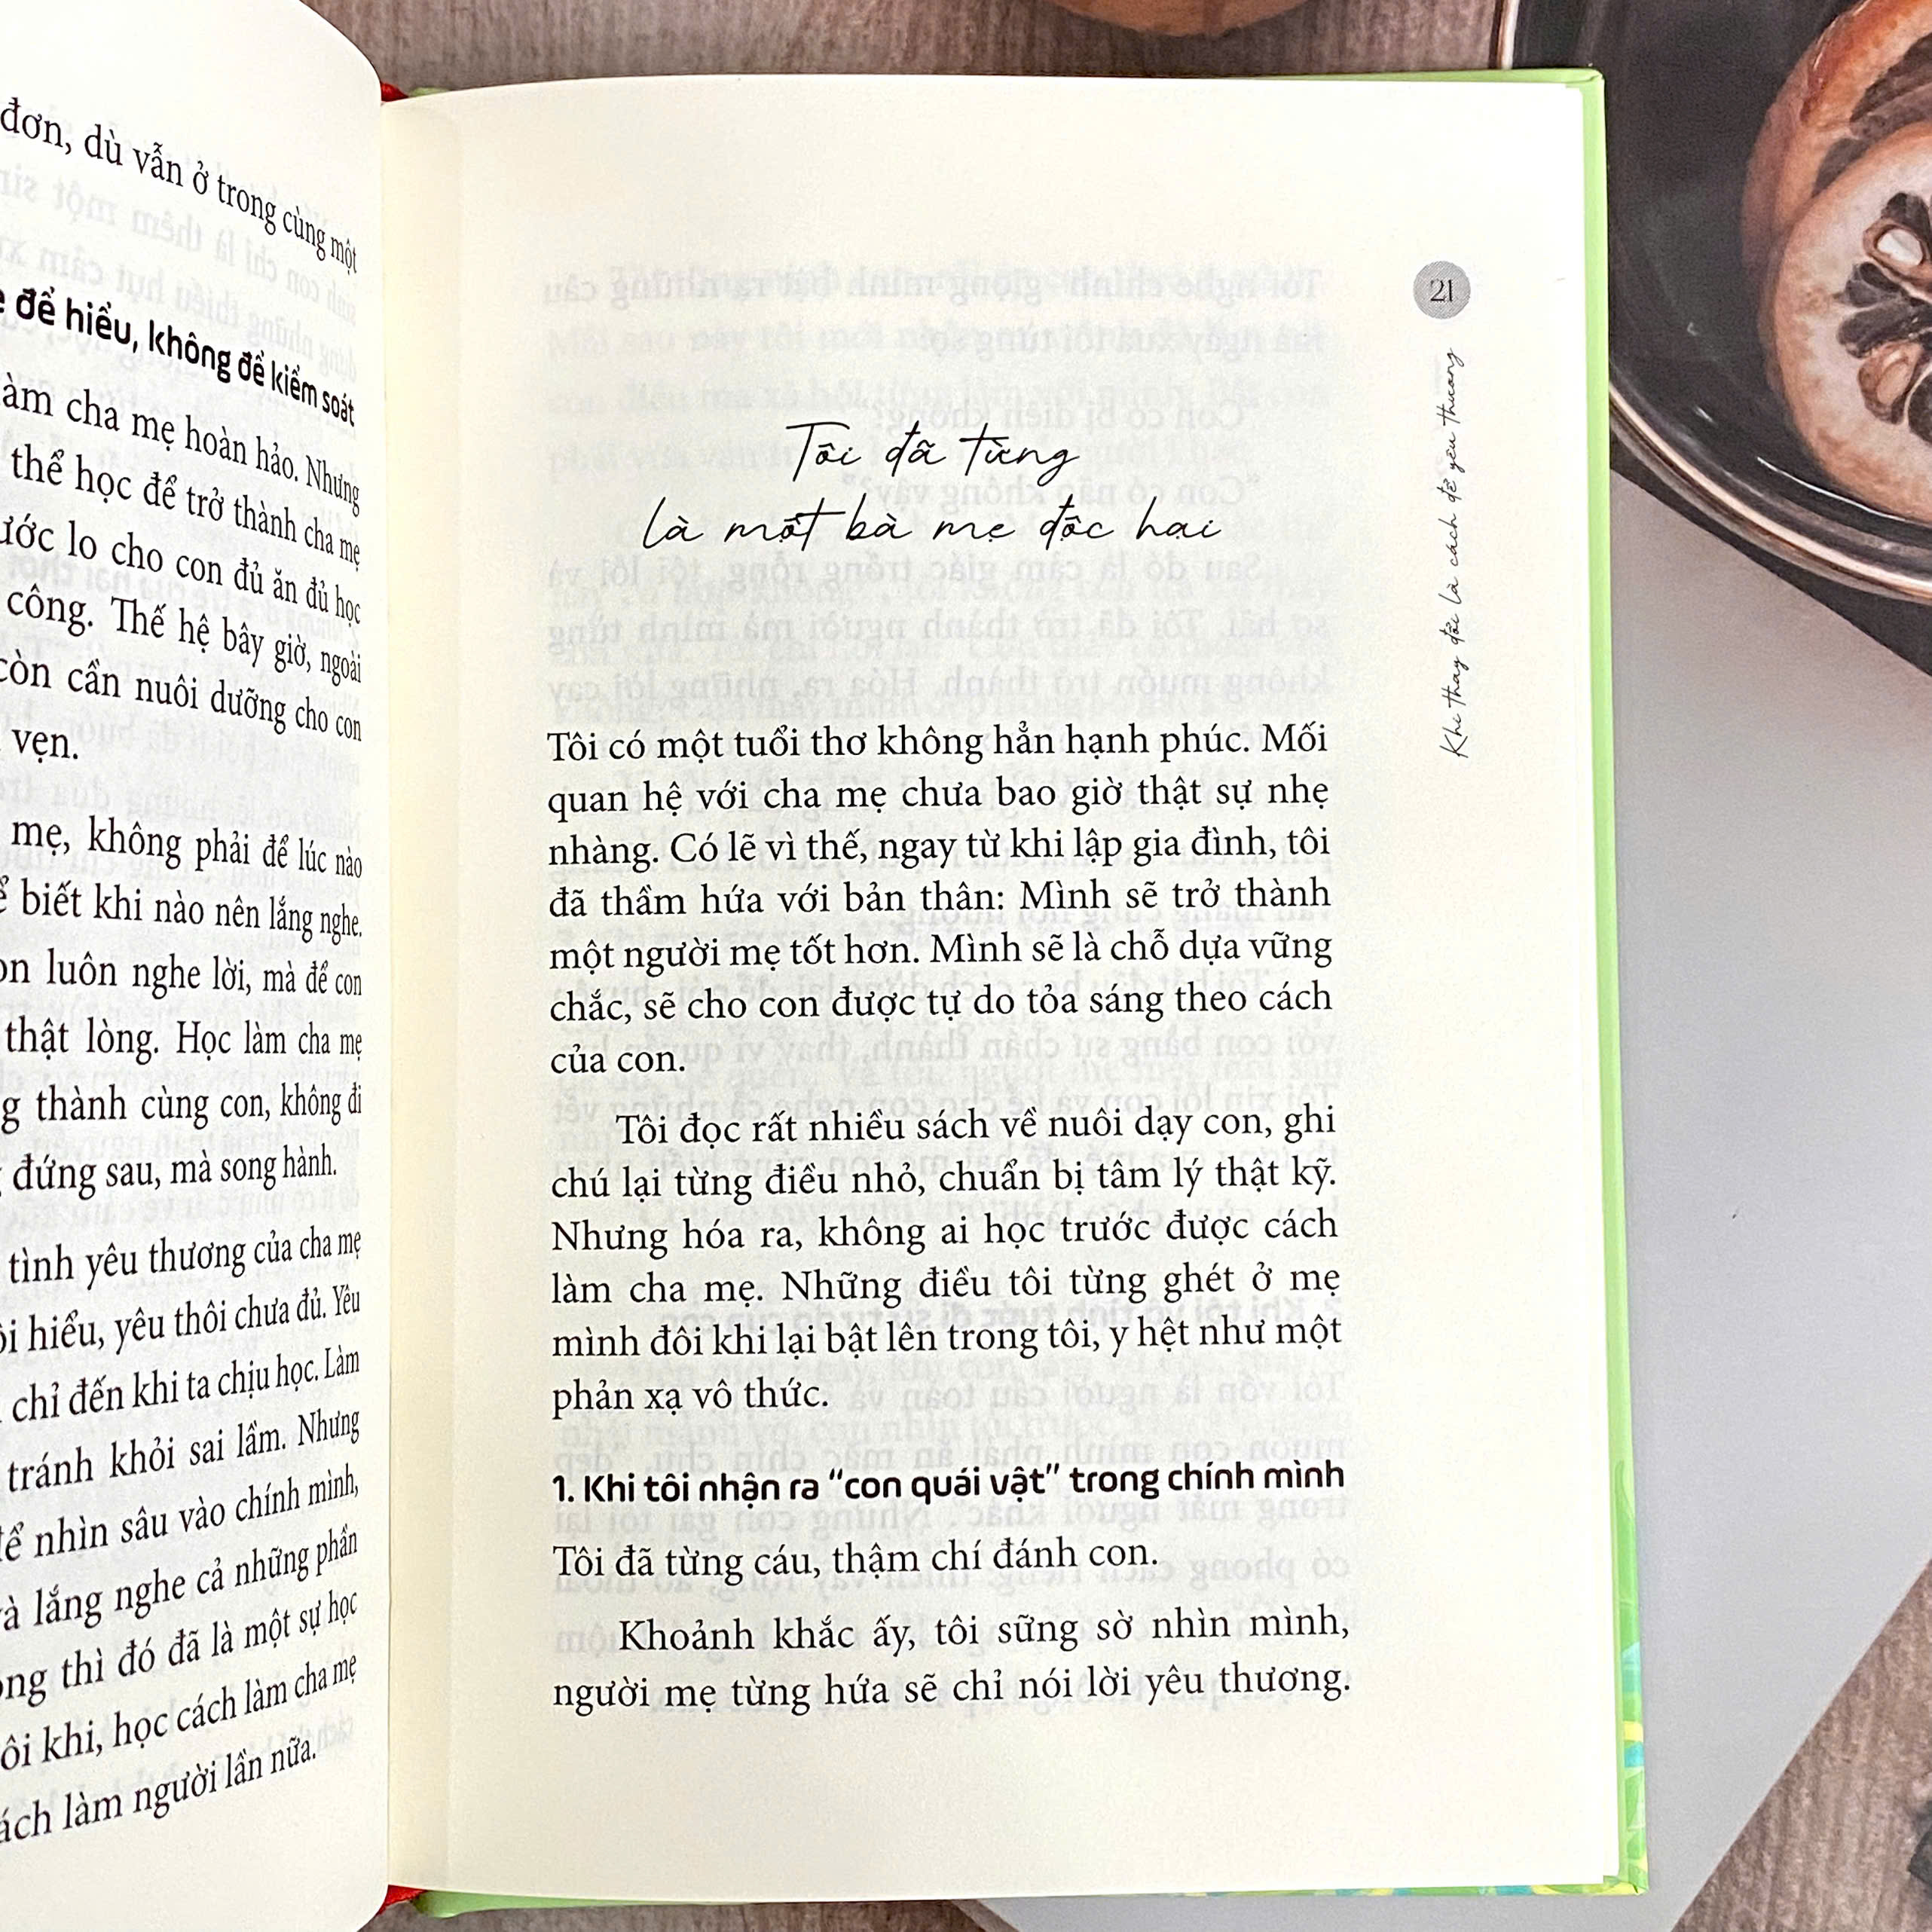 đơn, dù vẫn ở trong cùng một
để hiểu, không để kiểm soát
làm cha mẹ hoàn hảo. Nhưng
thể học để trở thành cha mẹ
lo cho con đủ ăn đủ học
công. Thế hệ bây giờ, ngoài
còn cần nuôi dưỡng cho con
vẹn.
mẹ, không phải để lúc nào
biết khi nào nên lắng nghe.
luôn nghe lời, mà để con
thật lòng. Học làm cha mẹ
thành cùng con, không đi
đứng sau, mà song hành.
tình yêu thương của cha mẹ
hiểu, yêu thôi chưa đủ. Yêu
chỉ đến khi ta chịu học. Làm
tránh khỏi sai lầm. Nhưng
để nhìn sâu vào chính mình,
và lắng nghe cả những phần
thì đó đã là một sự học
khi, học cách làm cha mẹ
cách làm người lần nữa.
21
Khi thay đổi là cách để yêu thương
Tôi đã từng
là một bà mẹ độc hại
Tôi có một tuổi thơ không hẳn hạnh phúc. Mối
quan hệ với cha mẹ chưa bao giờ thật sự nhẹ
nhàng. Có lẽ vì thế, ngay từ khi lập gia đình, tôi
đã thầm hứa với bản thân: Mình sẽ trở thành
một người mẹ tốt hơn. Mình sẽ là chỗ dựa vững
chắc, sẽ cho con được tự do tỏa sáng theo cách
của con.
Tôi đọc rất nhiều sách về nuôi dạy con, ghi
chú lại từng điều nhỏ, chuẩn bị tâm lý thật kỹ.
Nhưng hóa ra, không ai học trước được cách
làm cha mẹ. Những điều tôi từng ghét ở mẹ
mình đôi khi lại bật lên trong tôi, y hệt như một
phản xạ vô thức.
1. Khi tôi nhận ra “con quái vật” trong chính mình
Tôi đã từng cáu, thậm chí đánh con.
Khoảnh khắc ấy, tôi sững sờ nhìn mình,
người mẹ từng hứa sẽ chỉ nói lời yêu thương.